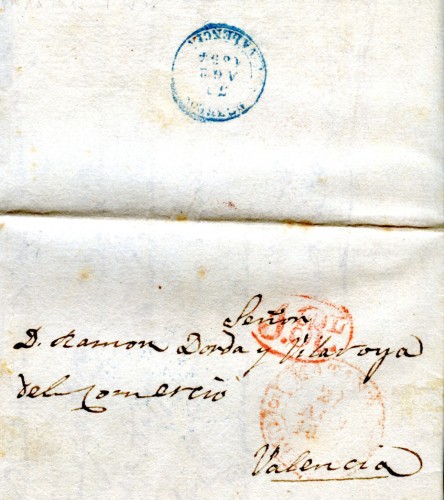 VALENCIA
1854
AGO
Señor
D. Ramon Dorda y Vilaroya
del Comercio
Valencia